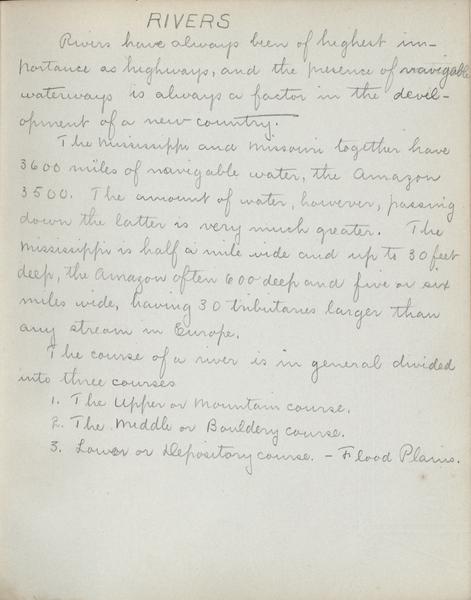 RIVERS
Rivers have always been of highest im-
portance as highways, and the presence of navigable
waterways is always a factor in the devel-
opment of a new country.
The Mississippi and Missouri together have
3600 miles of navigable water, the Amazon
3500. The amount of water, however, passing
down the latter is very much greater. The
Mississippi is half a mile wide and up to 30 feet
deep, the Amazon often 600 deep and five or six
miles wide, having 30 tributaries larger than
any stream in Europe.
The course of a river is in general divided
into three courses
1. The Upper or Mountain course.
2. The Middle or Bouldery course.
3. Lower or Depository course. - Flood Plains.